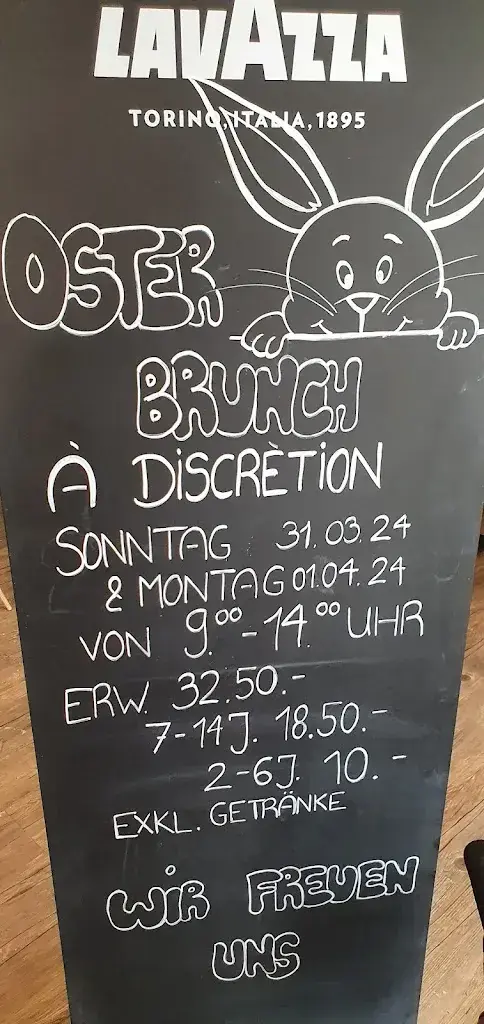 LAVAZZA
TORINO, ITALIA, 1895
OSTER
BRUNCH
À DISCRÈTION
SONNTAG 31.03.24
& MONTAG 01.04.24
VON 9.⁰⁰-14.⁰⁰ UHR
ERW. 32.50.-
7-14J. 18.50.-
2-6J. 10.-
EXKL. GETRÄNKE
WIR FREUEN
UNS